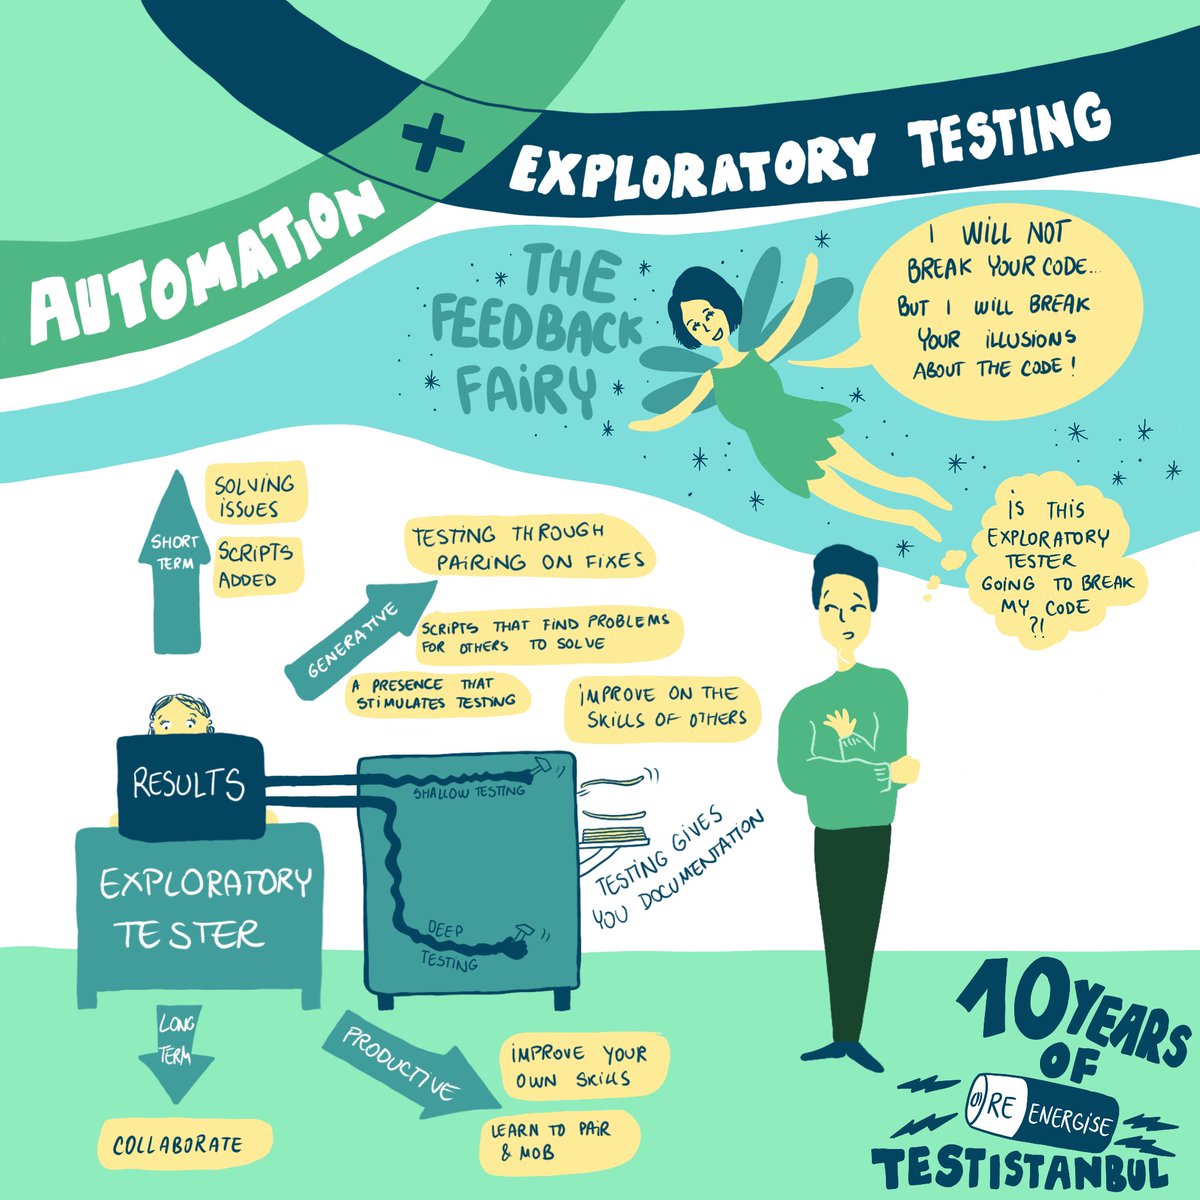 AUTOMATION
+
EXPLORATORY TESTING
THE
FEEDBACK
FAIRY
I WILL NOT
BREAK YOUR CODE...
BUT I WILL BREAK
YOUR ILLUSIONS
ABOUT THE CODE!
IS THIS
EXPLORATORY
TESTER
GOING TO BREAK
MY CODE
?!
SHORT
TERM
SOLVING
ISSUES
SCRIPTS
ADDED
GENERATIVE
TESTING THROUGH
PAIRING ON FIXES
SCRIPTS THAT FIND PROBLEMS
FOR OTHERS TO SOLVE
A PRESENCE THAT
STIMULATES TESTING
IMPROVE ON THE
SKILLS OF OTHERS
RESULTS
EXPLORATORY
TESTER
SHALLOW TESTING
DEEP
TESTING
TESTING GIVES
YOU DOCUMENTATION
LONG
TERM
COLLABORATE
PRODUCTIVE
IMPROVE YOUR
OWN SKILLS
LEARN TO PAIR
& MOB
10 YEARS
OF
RE ENERGISE
TESTISTANBUL